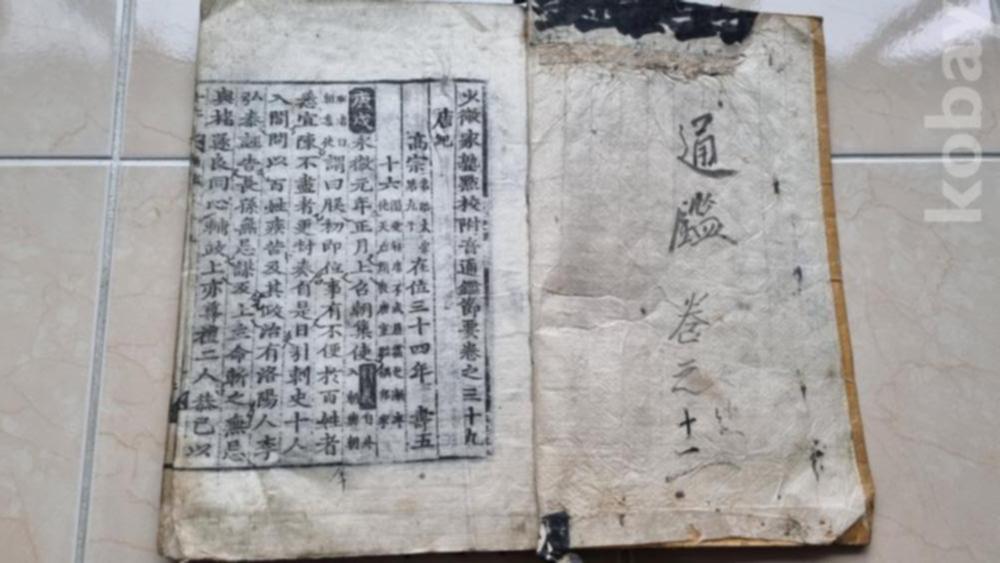 通鑑 卷之十二
少微家塾點校附音通鑑節要卷之三十九
唐紀
高宗 在位三十四年 壽五
十六
庚戌 永徽元年正月上召朝集使
謂曰朕初即位事有不便於百姓者
悉宜陳不盡者更封奏自是日引刺史十人
入閤問以百姓疾苦及其政治有洛陽人李
弘泰誣告長孫無忌謀反上立命斬之無忌
與褚遂良同心輔政上亦尊禮二人恭己以
kobay